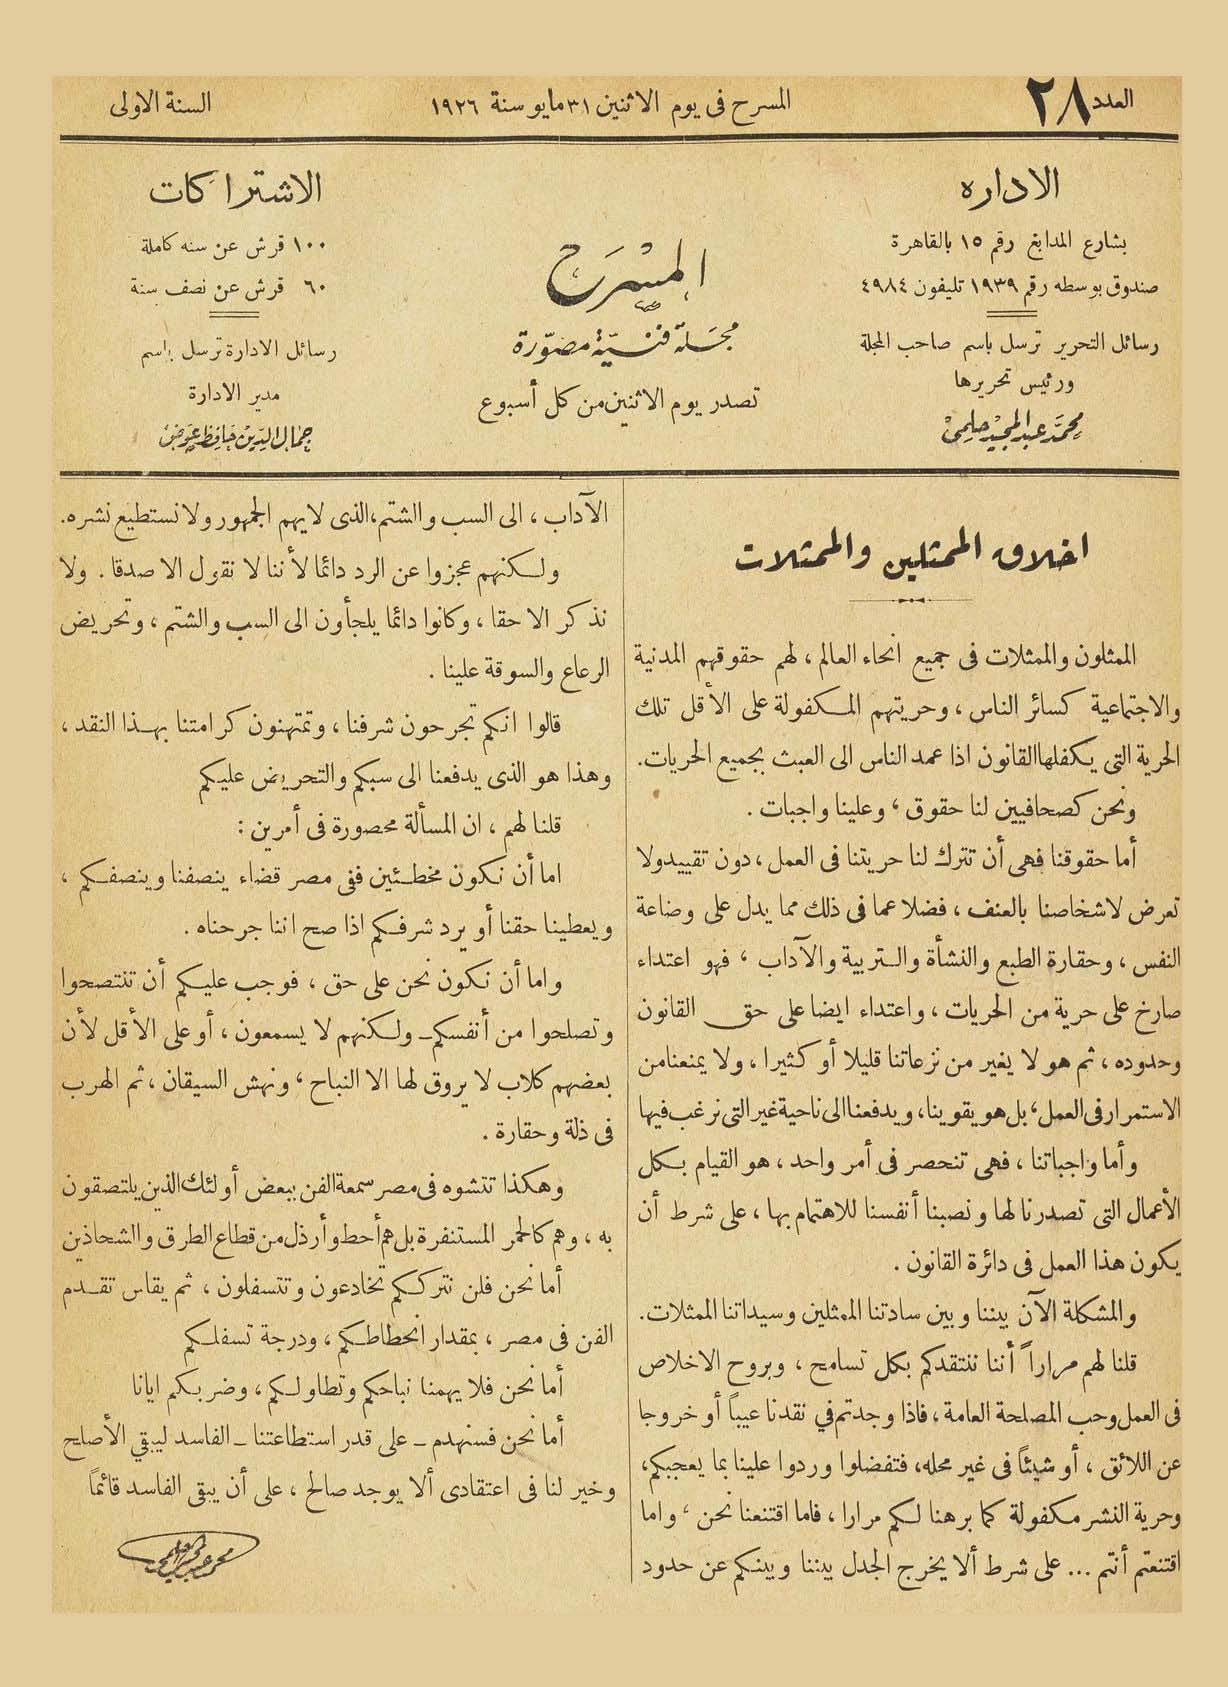 العدد ٢٨
المسرح فى يوم الاثنين ٣١ مايو سنة ١٩٢٦
السنة الاولى
الاداره
بشارع المدابغ رقم ١٥ بالقاهرة
صندوق بوسطه رقم ١٩٣٩ تليفون ٤٩٨٤
رسائل التحرير ترسل باسم صاحب المجلة
ورئيس تحريرها
محمد عبد المجيد حلمى
المسرح
مجلة فنية مصورة
تصدر يوم الاثنين من كل أسبوع
الاشتراكات
١٠٠ قرش عن سنه كاملة
٦٠ قرش عن نصف سنة
رسائل الادارة ترسل باسم
مدير الادارة
جمال الدين حافظ عوض
اخلاق الممثلين والممثلات
الممثلون والممثلات فى جميع انحاء العالم ، لهم حقوقهم المدنية
والاجتماعية كسائر الناس ، وحريتهم المكفولة على الأقل تلك
الحرية التى يكفلها القانون اذا عمد الناس الى العبث بجميع الحريات.
ونحن كصحافيين لنا حقوق ، وعلينا واجبات .
أما حقوقنا فهى أن تترك لنا حريتنا فى العمل ، دون تقييد ولا
تعرض لاشخاصنا بالعنف ، فضلا عما فى ذلك مما يدل على وضاعة
النفس ، وحقارة الطبع والنشأة والتربية والآداب ، فهو اعتداء
صارخ على حرية من الحريات ، واعتداء ايضا على حق القانون
وحدوده ، ثم هو لا يغير من نزعاتنا قليلا أو كثيرا ، ولا يمنعنا من
الاستمرار فى العمل ، بل هو يقوينا ، ويدفعنا الى ناحية غير التى نرغب فيها
وأما واجباتنا ، فهى تنحصر فى أمر واحد ، هو القيام بكل
الأعمال التى تصدرنا لها ونصبنا أنفسنا للاهتمام بها ، على شرط أن
يكون هذا العمل فى دائرة القانون .
والمشكلة الآن بيننا وبين سادتنا الممثلين وسيداتنا الممثلات.
قلنا لهم مراراً أننا ننتقدكم بكل تسامح ، وبروح الاخلاص
فى العمل وحب المصلحة العامة ، فاذا وجدتم في نقدنا عيباً أو خروجا
عن اللائق ، أو شيئاً فى غير محله، فتفضلوا وردوا علينا بما يعجبكم،
وحرية النشر مكفولة كما برهنا لكم مرارا ، فاما اقتنعنا نحن ، واما
اقتنعتم أنتم ... على شرط ألا يخرج الجدل بيننا وبينكم عن حدود
الآداب ، الى السب والشتم ، الذى لا يهم الجمهور ولا نستطيع نشره.
ولكنهم عجزوا عن الرد دائما لأننا لا نقول الا صدقا . ولا
نذكر الا حقا ، وكانوا دائما يلجأون الى السب والشتم ، وتحريض
الرعاع والسوقة علينا .
قالوا انكم تجرحون شرفنا ، وتمتهنون كرامتنا بهذا النقد ،
وهذا هو الذى يدفعنا الى سبكم والتحريض عليكم
قلنا لهم ، ان المسألة محصورة فى أمرين :
اما أن نكون مخطئين ففى مصر قضاء ينصفنا وينصفكم ،
ويعطينا حقنا أو يرد شرفكم اذا صح اننا جرحناه .
واما أن نكون نحن على حق ، فوجب عليكم أن تنتصحوا
وتصلحوا من أنفسكم ـ ولكنهم لا يسمعون ، أو على الأقل لأن
بعضهم كلاب لا يروق لها الا النباح ، ونهش السيقان ، ثم الهرب
فى ذلة وحقارة .
وهكذا تتشوه فى مصر سمعة الفن ببعض أولئك الذين يلتصقون
به ، وهم كالحمر المستنفرة بل هم أحط وأرذل من قطاع الطرق والشحاذين
أما نحن فلن نترككم تخادعون وتتسفلون ، ثم يقاس تقدم
الفن فى مصر ، بمقدار انحطاطكم ، ودرجة تسفلكم
أما نحن فلا يهمنا نباحكم وتطاولكم ، وضربكم ايانا
أما نحن فسنهدم ـ على قدر استطاعتنا ـ الفاسد ليبقي الأصلح
وخير لنا فى اعتقادى ألا يوجد صالح ، على أن يبقى الفاسد قائماً
محمد عبد المجيد حلمى